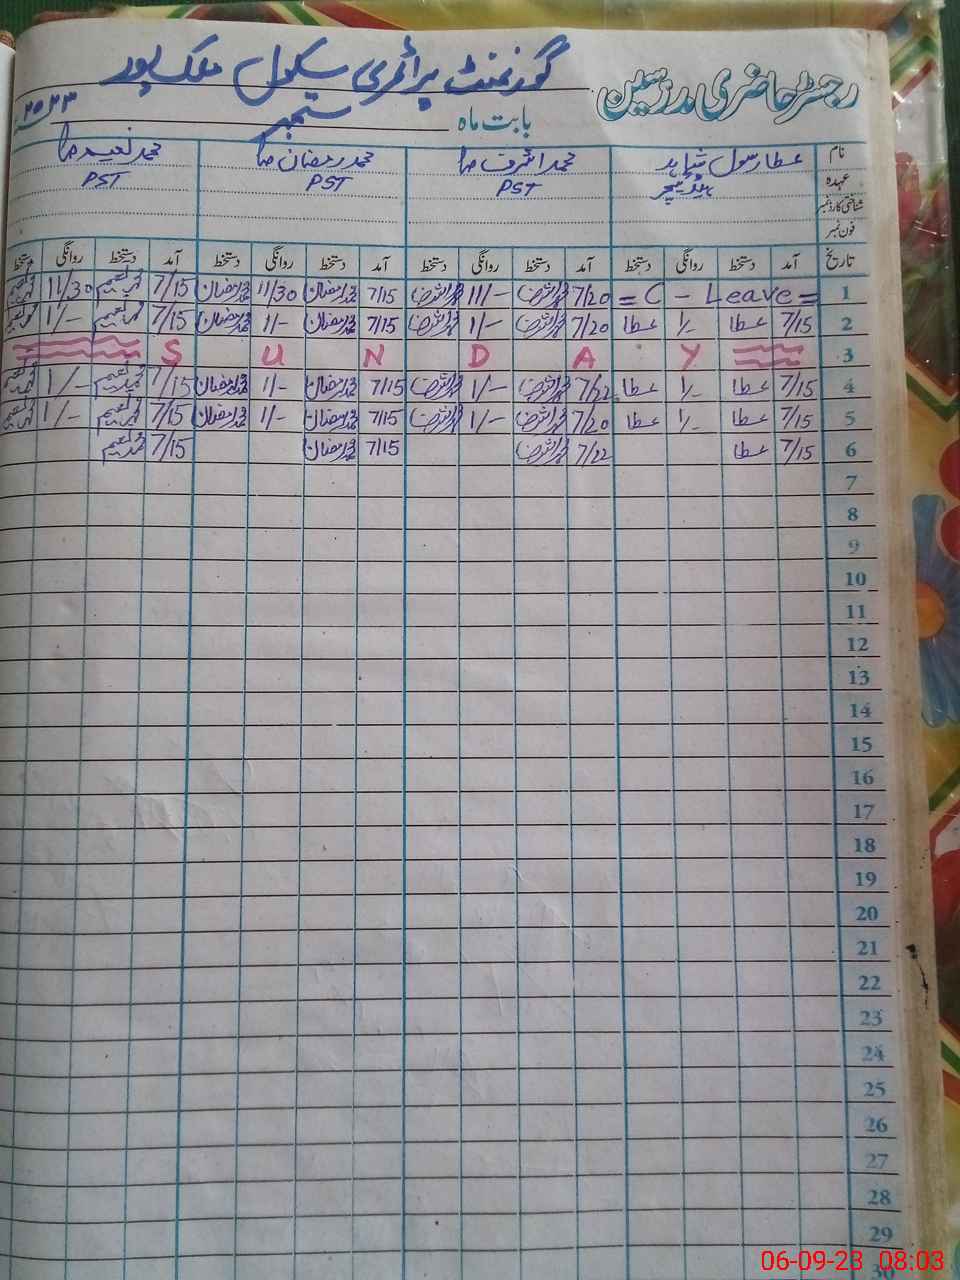 گورنمنٹ پرائمری سکول ملک پور
رجسٹر حاضری مدرسین
بابت ماہ ستمبر ۲۰۲۳
نام عطا رسول شاہد محمد اشرف صا محمد رمضان صا محمد نعیم صا
عہدہ ہیڈ ٹیچر PST PST PST
شناختی کارڈ نمبر
فون نمبر
تاریخ آمد دستخط روانگی دستخط آمد دستخط روانگی دستخط آمد دستخط روانگی دستخط آمد دستخط روانگی دستخط
1 = C - Leave = 7/20 محمد اشرف 11/- محمد اشرف 7/15 محمد رمضان 11/30 محمد رمضان 7/15 محمد نعیم 11/30 محمد نعیم
2 7/15 عطا 1/- عطا 7/20 محمد اشرف 1/- محمد اشرف 7/15 محمد رمضان 1/- محمد رمضان 7/15 محمد نعیم 1/- محمد نعیم
3 S U N D A Y
4 7/15 عطا 1/- عطا 7/22 محمد اشرف 1/- محمد اشرف 7/15 محمد رمضان 1/- محمد رمضان 7/15 محمد نعیم 1/- محمد نعیم
5 7/15 عطا 1/- عطا 7/20 محمد اشرف 1/- محمد اشرف 7/15 محمد رمضان 1/- محمد رمضان 7/15 محمد نعیم 1/- محمد نعیم
6 7/15 عطا 7/22 محمد اشرف 7/15 محمد رمضان 7/15 محمد نعیم
7
8
9
10
11
12
13
14
15
16
17
18
19
20
21
22
23
24
25
26
27
28
29
30
06-09-23 08:03